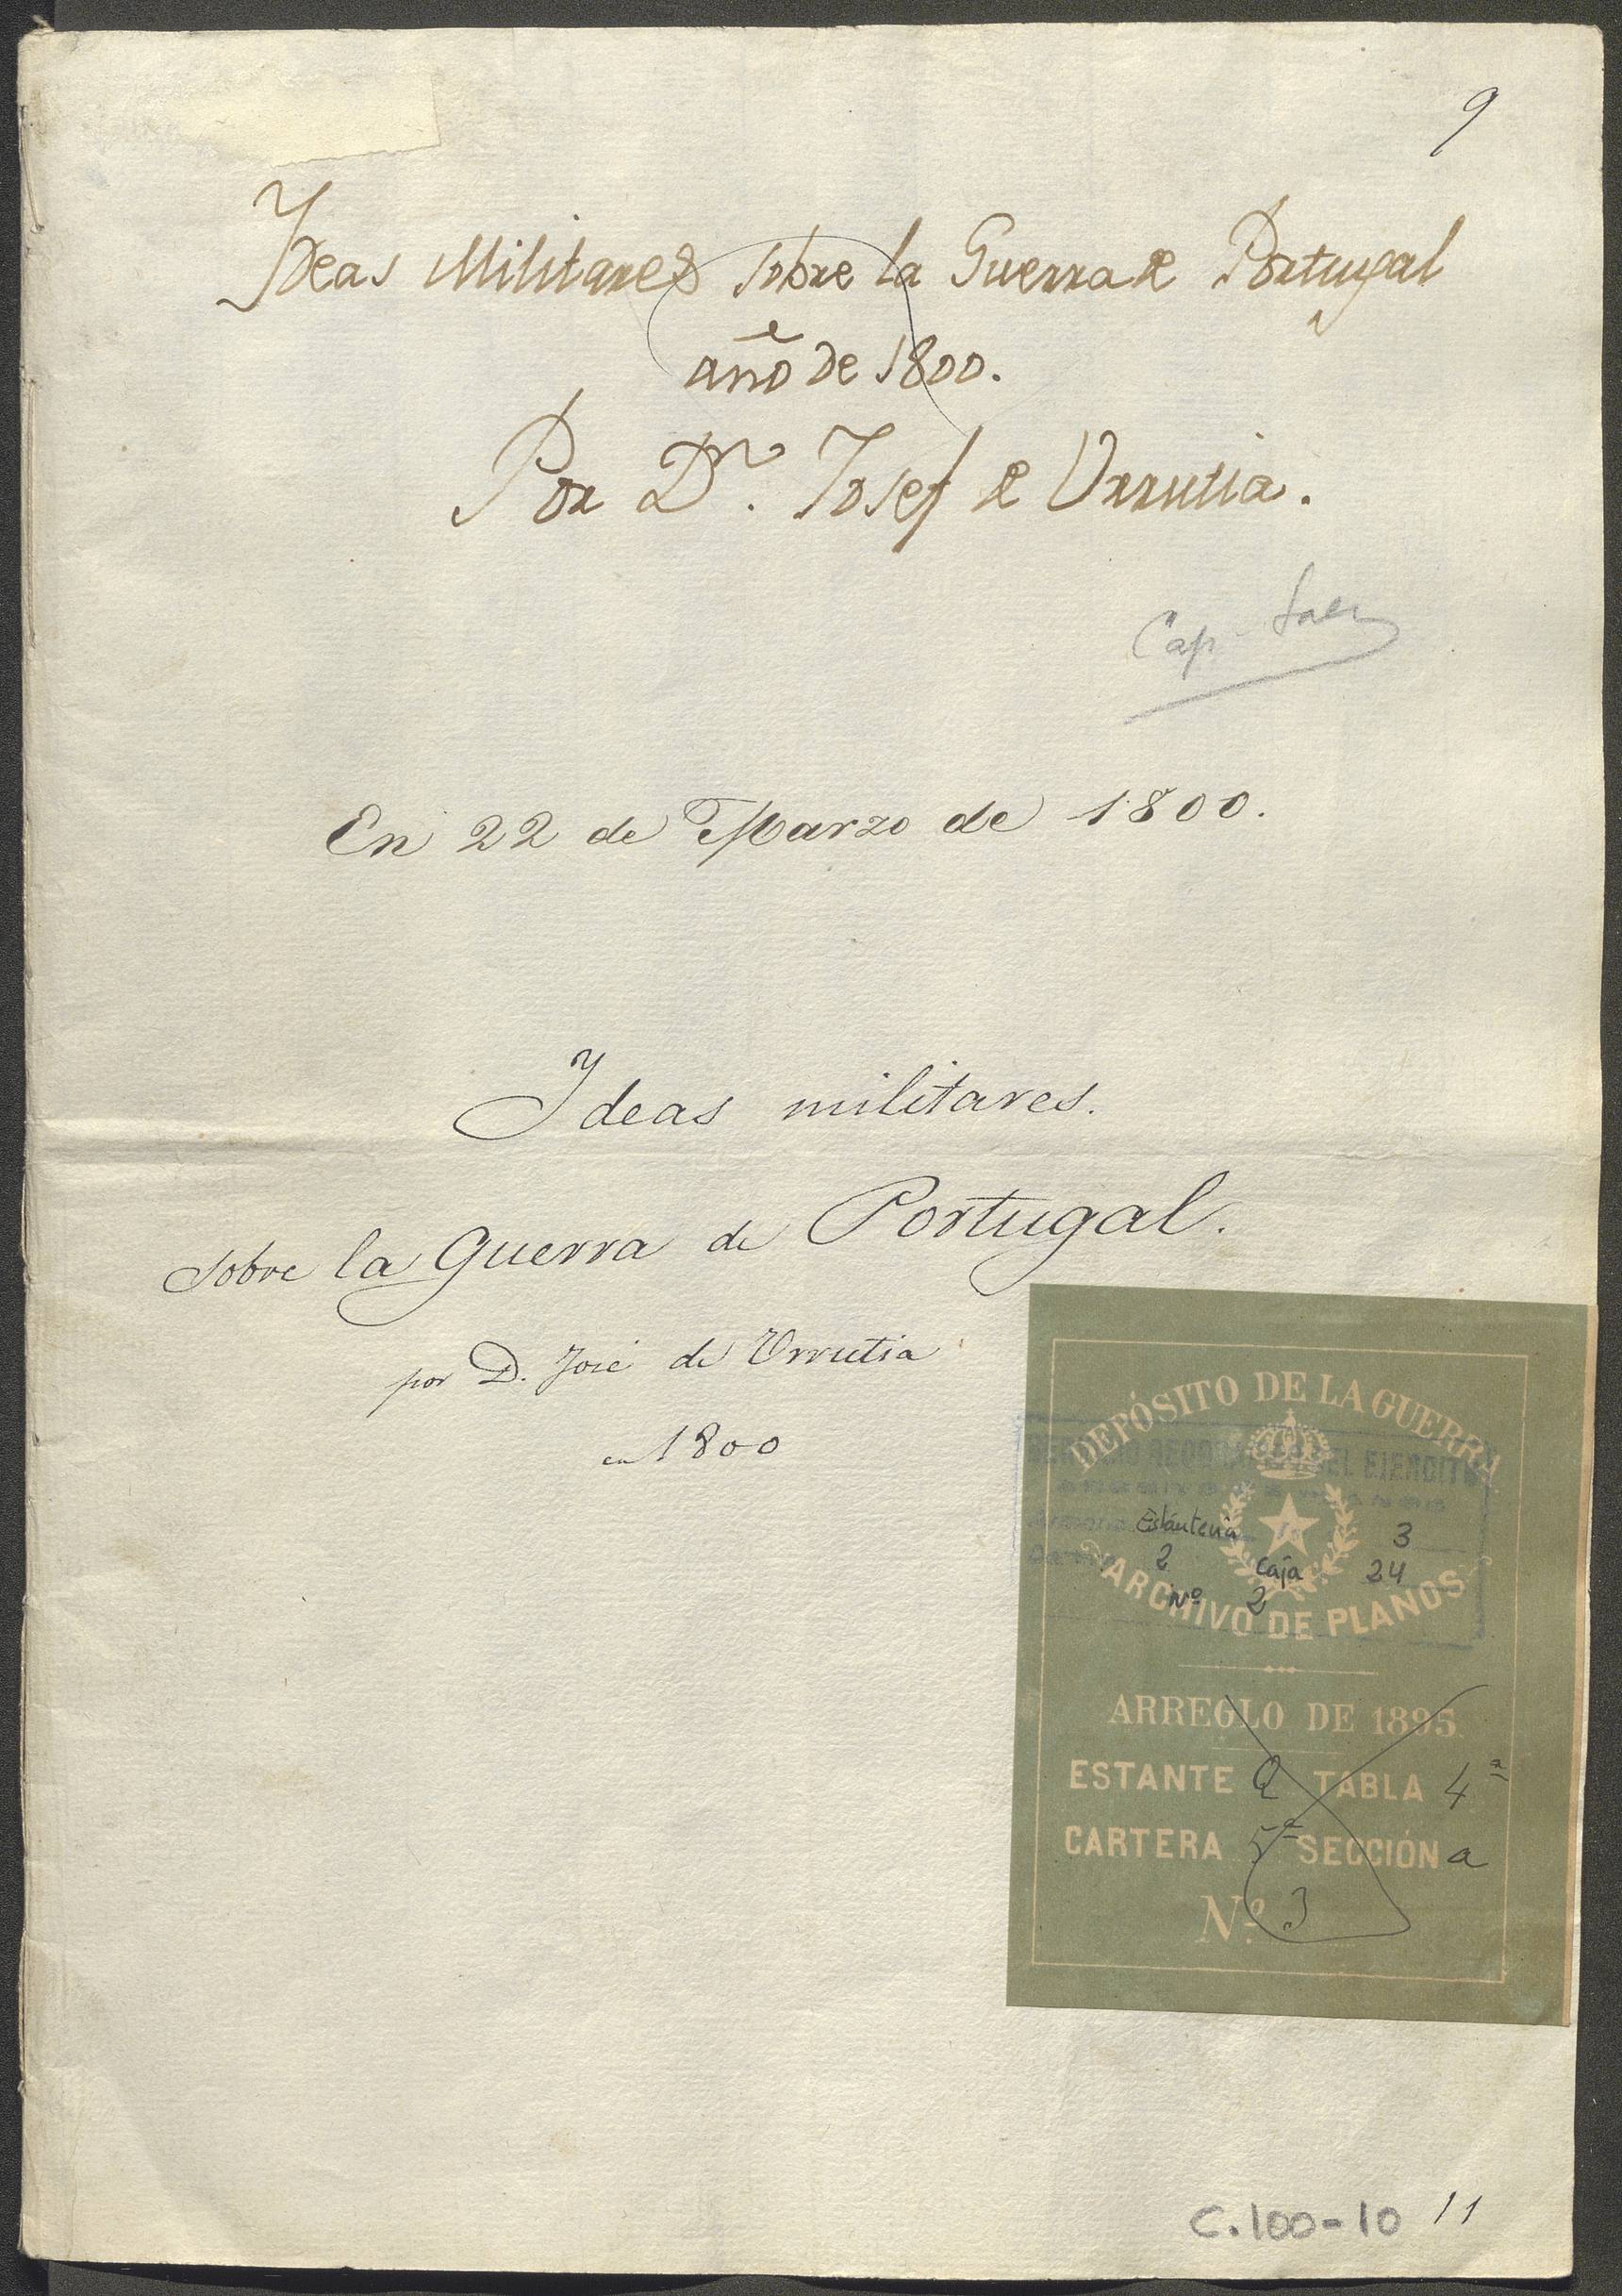 9
Ideas Militares sobre la Guerra de Portugal
año de 1800.
Por Dn. Josef de Urrutia.
Cap.
En 22 de Marzo de 1800.
Ideas militares.
sobre la Guerra de Portugal.
por D. José de Urrutia
en 1800
DEPÓSITO DE LA GUERRA
DEL EJERCITO
Estantería 3
2 Caja 24
Nº 2
ARCHIVO DE PLANOS
ARREGLO DE 1895
ESTANTE 2 TABLA 4ª
CARTERA 5ª SECCIÓN a
Nº 3
C.100-10 11